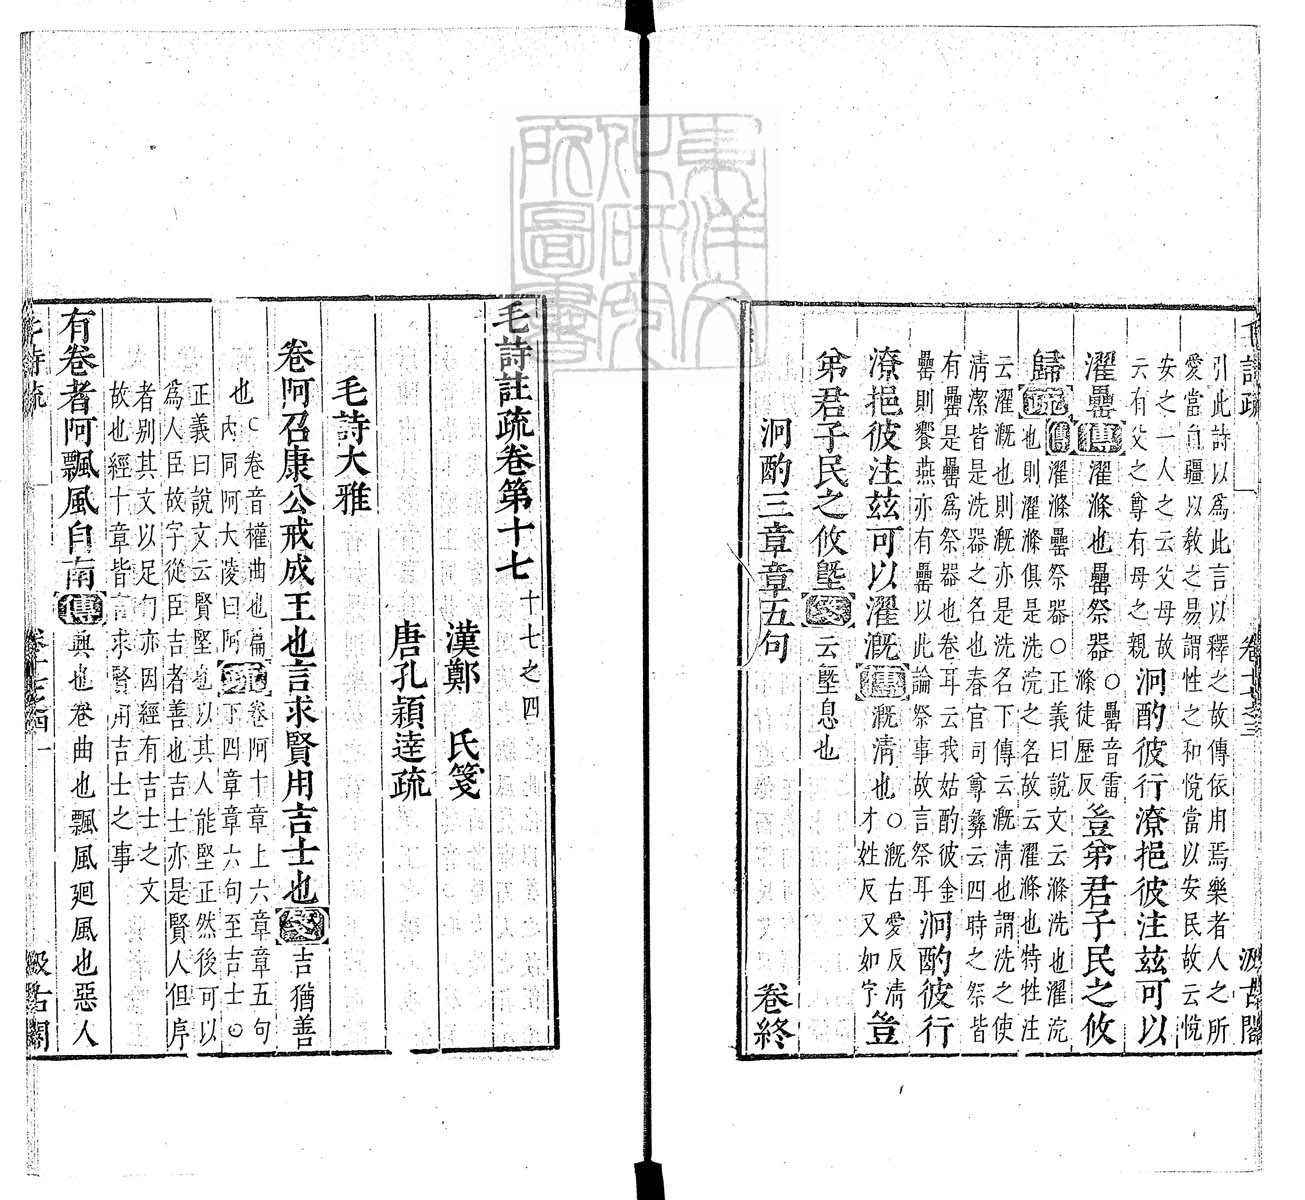 毛詩疏
卷十七之三
汲古閣
引此詩以爲此言以釋之故傳依用焉樂者人之所
愛當自彊以敎之易謂性之和悅當以安民故云悅
安之一人之云父母故
云有父之尊有母之親
泂酌彼行潦挹彼注茲可以
濯罍傳濯滌也罍祭器
○罍音雷
滌徒歷反
豈弟君子民之攸
歸疏傳濯滌罍祭器○正義曰說文云滌洗也濯浣
也則濯滌俱是洗浣之名故云濯滌也特牲注
云濯漑也則漑亦是洗名下傳云漑清也謂洗之使
清潔皆是洗器之名也春官司尊彝云四時之祭皆
有罍是罍爲祭器也卷耳云我姑酌彼金
罍則饗燕亦有罍以此論祭事故言祭耳
泂酌彼行
潦挹彼注茲可以濯漑傳漑清也
○漑古愛反清
才姓反又如字
豈
弟君子民之攸墍箋云墍息也
泂酌三章章五句
卷終
毛詩註疏卷第十七
十七之四
漢鄭 氏箋
唐孔穎達疏
毛詩大雅
卷阿召康公戒成王也言求賢用吉士也箋吉猶善
也
○卷音權曲也篇
內同阿大陵曰阿
疏
卷阿十章上六章章五句
下四章章六句至吉士○
正義曰說文云賢堅也以其人能堅正然後可以
爲人臣故字從臣吉者善也吉士亦是賢人但序
者別其文以足句亦因經有吉士之文
故也經十章皆言求賢用吉士之事
有卷者阿飄風自南傳興也卷曲也飄風廻風也惡人
毛詩疏
卷十七之四
一
汲古閣